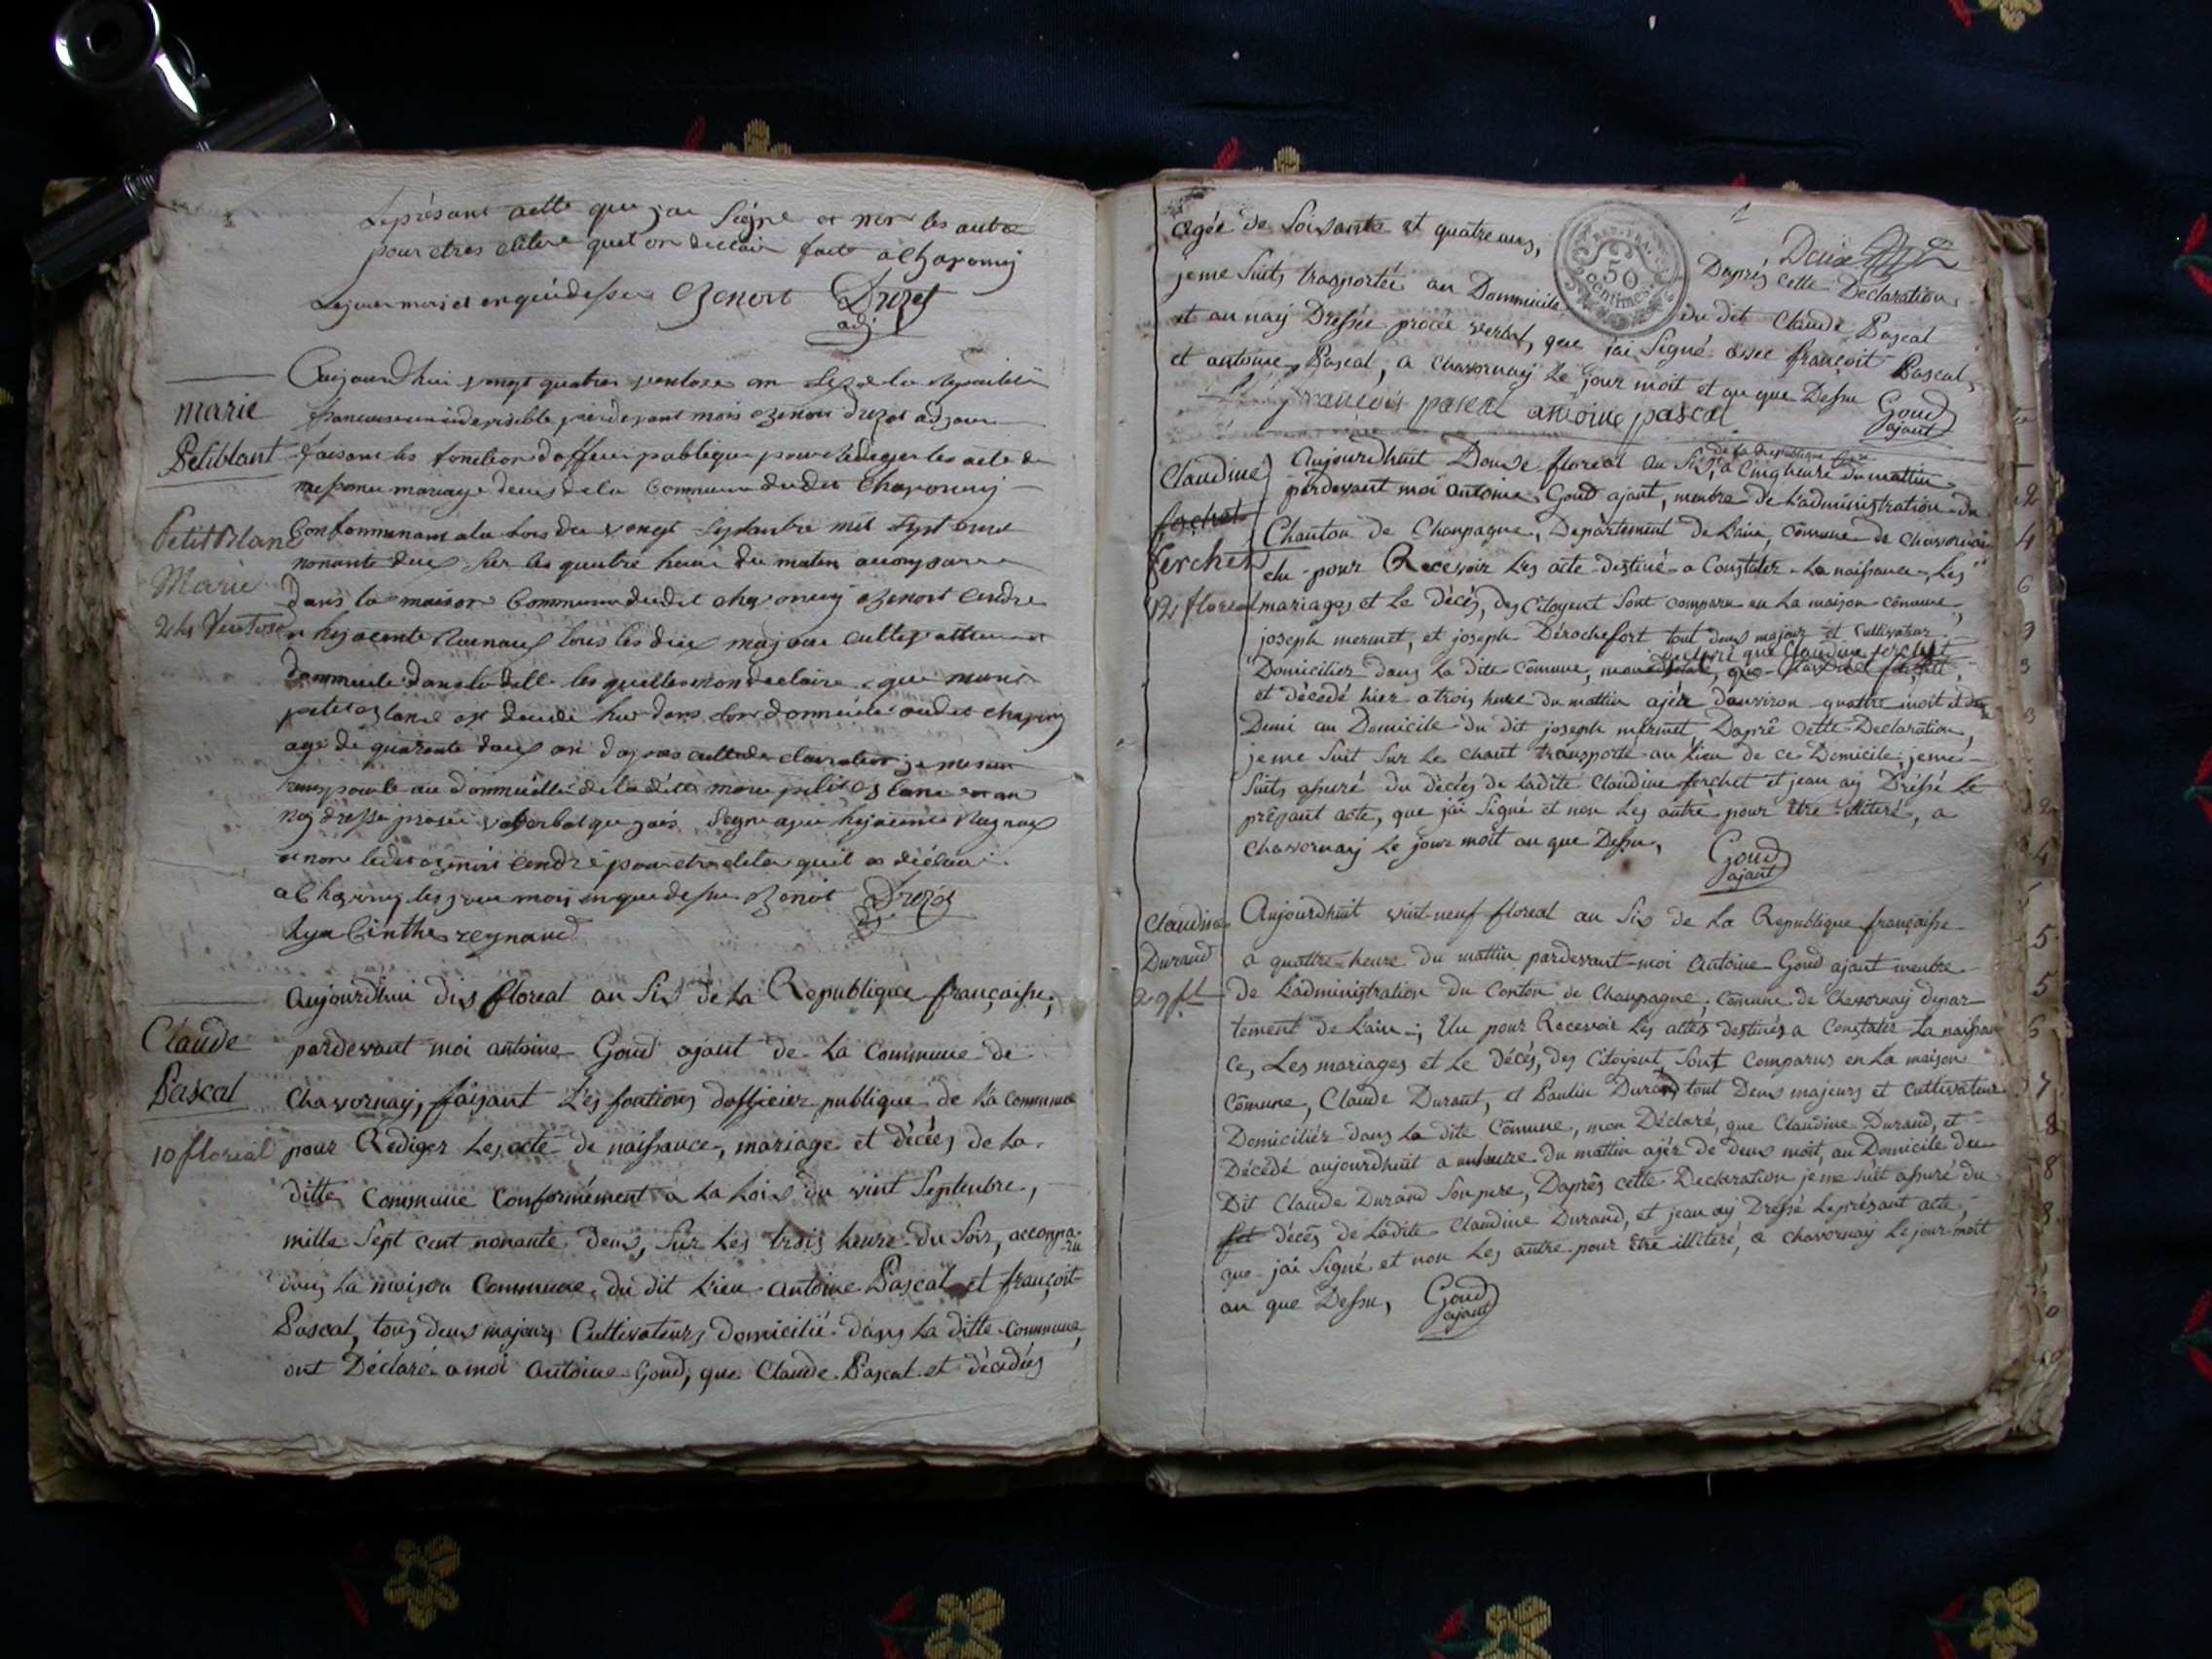 Leprésant actte que jai Signe et non les autre
pour etres eliter quil on declair fait a Chavornay
Le jour mois et en que dessu Benoit Druzet
adj
Aujourdhui vengt quatres ventose an Six de la Republi
marie
francaise une indivisible pardevant mois Benoit Druzet adjoin
Petiblant
faisant les fonction dofficier publique pour Rediger les acte de
nessance mariage deces de la Commune dudit Chavornay
Petit Blanc
Conformemant a la loi du vengt Septambre mil Sept cent
nonante deux Sur les quatre heure du matin a comparu
Marie
Dans la maison Commune dudit Chavornay Benoit Cendre
24 Ventose
et hyacente Reynaud tous les deux majeur cultivatteur
dommicile dans la ditte les quelles mon declaire que marie
petit blanc est decede hier dans son domicile audit Chavornay
age de quarante deux an dapres cette declaration je me suis
transporte au dommicille de la ditte marie petit blanc et an
nay dresse prosei verbal que jais Segne avec hyacinte Reynaud
et non ledit benoit Cendre pour etre eliter quil a declai
a Chavornay les jour mois en que dessu Benoit Druzet
adj
hyaCinthe reynaud
Aujourdhui dix floreal an Six de la Republique françaisse,
Claude
pardevant moi antoine Goud ajant de la Commune de
Pascal
Chavornay, faisant Les fontions dofficier publique de la commune
10 floreal
pour Rediger les acte de naissance, mariage et décées de la
ditte Commune Conformément à la Lois du vint Septenbre,
mille Sept cent nonante deux, Sur les trois heure du Soir, acconpa-
ru
dans la maison Commune, du dit Lieu antoine Pascal et françoit
Pascal, tous deux majours Cultivateurs domicilié dans la ditte commune,
ont Déclaré a moi antoine Goud, que Claude Pascal et décédées
agée de Soisante et quatre ans,
Deux
REP. FRA.
50
centimes
Daprés cette Declaration
je me Suits trasportée au Dommicile du dit Claude Pascal
et an nay Dressée procée verbal, que jai Signé avec françoit Pascal,
et antoine Pascal, a Chavornay le jour moit et an que Dessu
françois pascal antoine pascal
Goud
ajant
de la Republique
Claudine
Aujourdhuit Douse floreal an Six, a Cinq heure du mattin
pardevant moi antoine Goud ajant, menbre de Ladministration du
ferchet
Chanton de Chanpagne, Departement de Lain, Comune de Chavornay
Ferchet
elu pour Recevoir Les acte destiné a Constater La naissance, Les
12 floreal
mariages et Le Décés, des Citoyent Sont comparu en La maison cômune,
joseph mermet, et joseph Dérochefort tout deux majour et Cultivateur
declaré que Claudine ferchet
Domicilier dans La dite Cômune, mon
et décedé hier a trois heure du mattin ajée danviron quattre moit et
Demi au Domicile du dit joseph mermet, Dapré cette Declaration,
je me Suit Sur Le chant transporté au Lieu de ce Domicile, je me
Suits assuré du décés de Ladite Claudine ferchet et jean ay Dréssé Le
présant acte, que jai Signé et non Les autre pour être illiteré, a
Chavornay Le jour moit an que Dessu,
Goud
ajant
Claudine
Aujourdhuit vint-neuf floreal an Six de La Republique françaisse
Durand
a quattre heure du mattin pardevant moi Antoine Goud ajant menbre
29 fl
de Ladministration du Conton de Chanpagne, Comune de Chavornay depar
tement de Lain, Elu pour Recevoir Les actes destinés a Constater La naissan
ce, Les mariages et Le décés, des Citoyent, Sont Comparus en La maison
Cômune, Claude Durant, et Paulin Durand tout Deux majeurs et Cultivateur
Domiciliér dans La dite Cômune, mon Déclaré, que Claudine Durand, et
Décédé aujourdhuit a unheure du mattin ajér de deux moit, au Domicile du
Dit Claude Durand Son pere, Daprês cette Declaration je me Suit assuré du
fet décés de Ladite Claudine Durand, et jean ay Dressé Leprésant acte,
que jai Signé et non Les autre pour être illiteré, a Chavornay Le jour moit
an que Dessu,
Goud
ajant